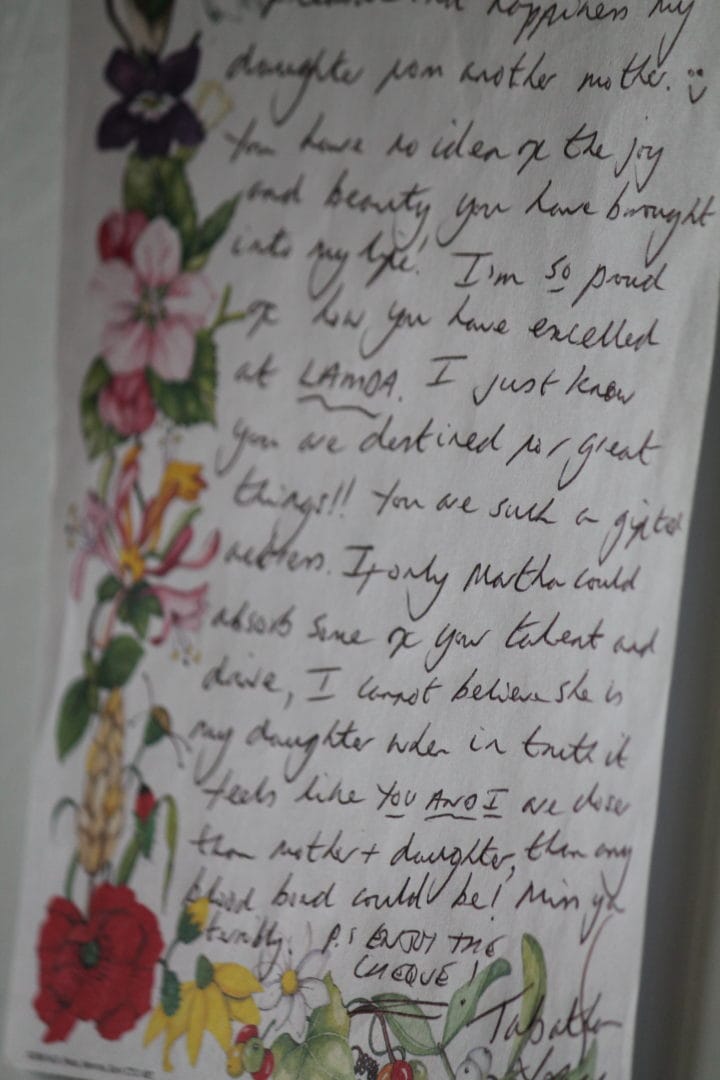 happiness my
daughter from another mother.
You have no idea of the joy
and beauty you have brought
into my life! I'm so proud
of how you have excelled
at LAMDA. I just know
you are destined for great
things!! You are such a gifted
actress. If only Martha could
absorb some of your talent and
drive, I cannot believe she is
my daughter when in truth it
feels like YOU AND I are closer
than mother + daughter, than any
blood bond could be! Miss ya
terribly. P.S ENJOY THE
CHEQUE!
Tabatha